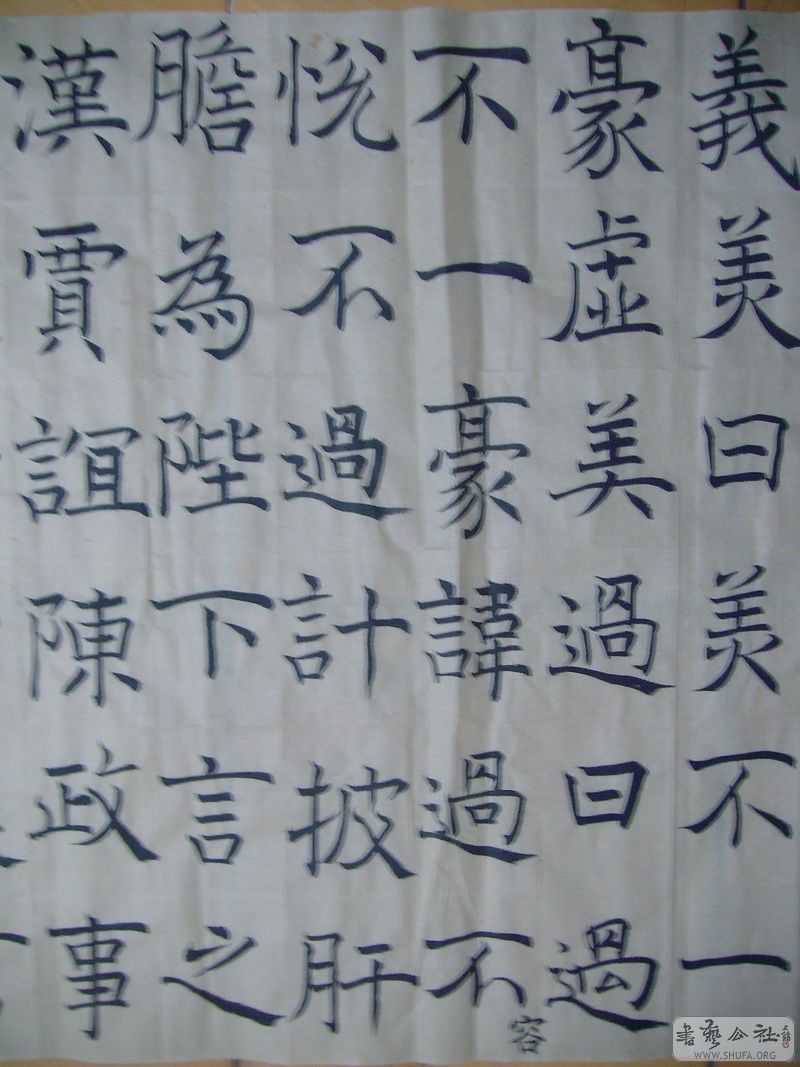 義美曰美不一
豪虛美過曰過
不一豪諱過不
容
悅不過計披肝
膽為陛下言之
漢賈誼陳政事
書藝公社
WWW.SHUFA.ORG